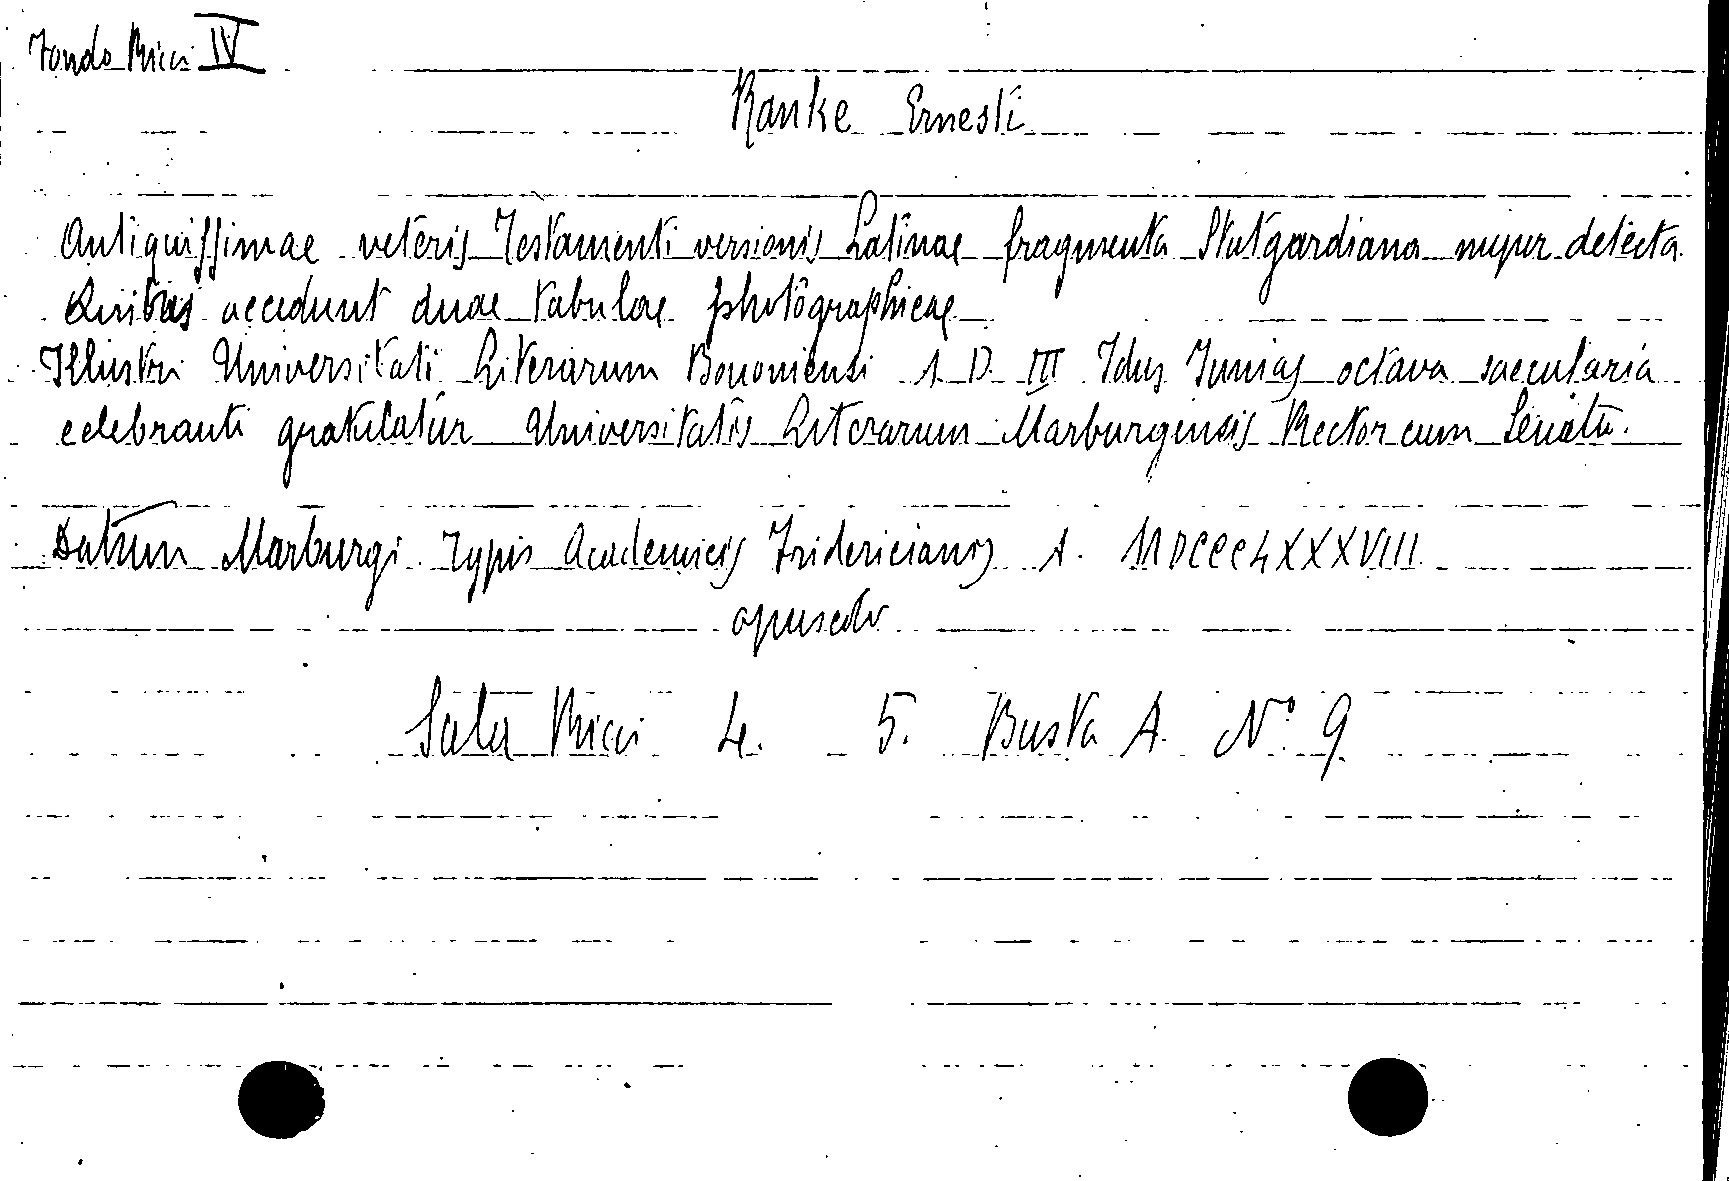 Fondo Ricci IV
Ranke Ernesti
Antiquissimae veteris Testamenti versionis Latinae fragmenta Stutgardiana nuper detecta
Quibus accedunt duae tabulae photographicae
Illustri Universitati Literarum Bononiensi A D III Idus Junias octava saecularia
celebranti gratulatur Universitatis Literarum Marburgensis Rector cum Senatu.
Datum Marburgi Typis Academicis Fridericianis A. MDCCCLXXXVIII
opuscolo
Sala Ricci 4. 5. Busta A N° 9